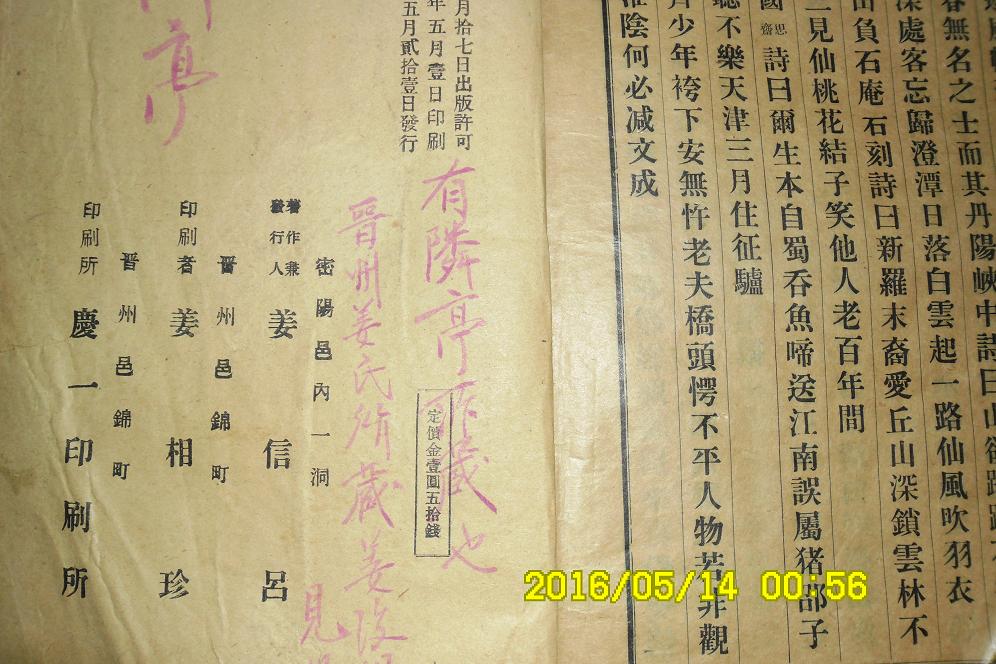 春無名之士而其丹陽峽中詩曰山欲丹陽
深處客忘歸澄潭日落白雲起一路仙風吹羽衣
田負石庵石刻詩曰新羅末裔愛丘山深鎖雲林不
二見仙桃花結子笑他人老百年間
國思齋詩曰爾生本自蜀吞魚啼送江南誤屬猪部子
聽不樂天津三月住征驢
少年袴下安無忤老夫橋頭愕不平人物若非觀
淮陰何必减文成
月拾七日出版許可
年五月壹日印刷
五月貳拾壹日發行
有隣亭所藏也
定價金壹圓五拾錢
晋州姜氏所藏姜
見
密陽邑內一洞
著作兼發行人 姜信呂
晋州邑錦町
印刷者 姜相珍
晋州邑錦町
印刷所 慶一印刷所
亭
2016/05/14 00:56